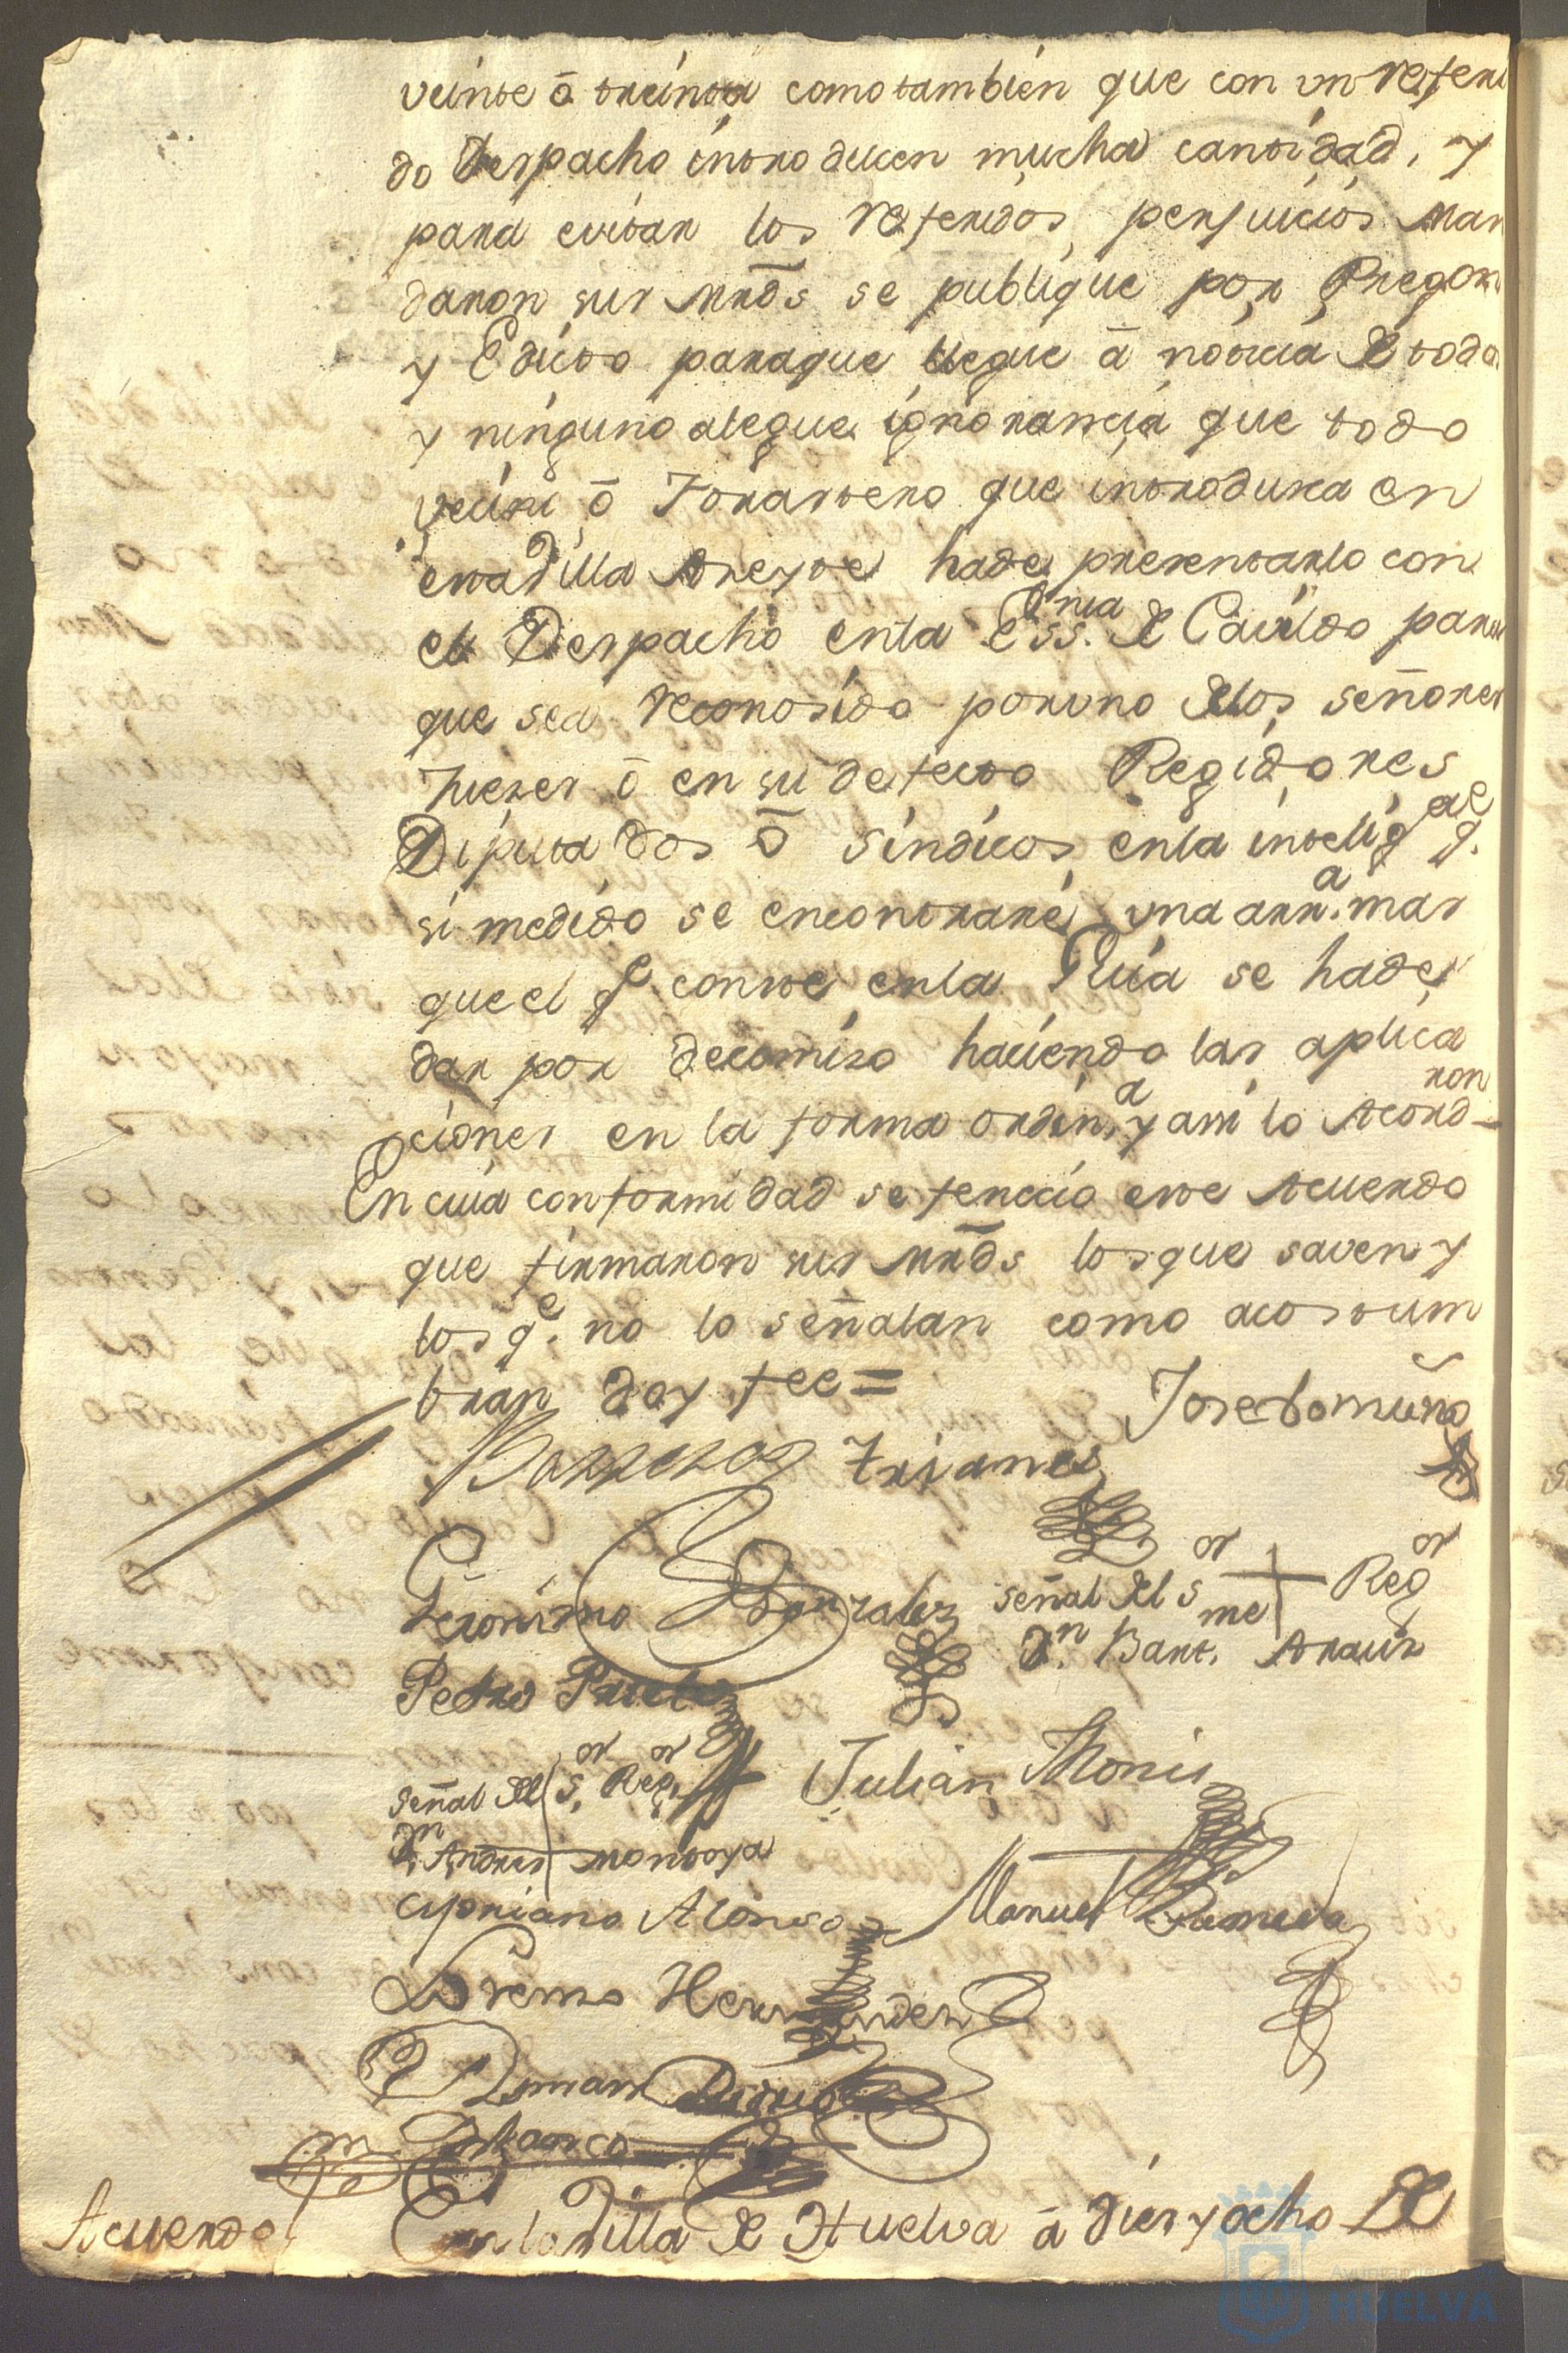 veinte ó treinta como tambien que con un referi
do Despacho introducen mucha cantidad, y
para evitar los referidos perjuicios Man
daron sus Mrds se publique por Pregon
y Edicto paraque llegue á noticia de todos
y ninguno alegue ignorancia que todo
vecino ó Forastero que introdusca en
esta Villa Azeyte hade presentarlo con
el Despacho enla Essnia de Cavildo para
que sea reconosido poruno delos señores
Juezes ó en su defecto Regidores
Diputados ó sindicos enla inteliga q.e
si medido se encontrare una arr.a mas
que el q.e conste enla Guia se hade
dar por decomiso haciendo las aplica
ciones en la forma ordin.a y assi lo Acordron
En cuia conformidad se fenecio este Acuerdo
que firmaron sus Mrds los que saven y
los q.e no lo señalan como acostum
bran doy fee =
Barreros Trianes
Geronimo Gonzales señal del s.or + Reg.or
Dn. Bart.me Arauz
Pedro Prieto
señal del s.or Reg.or + Julian Monis
Dn. Andres Montoya
Cypriano Alonso Manuel
Lorenzo Hernandez
Roman
Acuerdo En la Villa de Huelva á diez y ocho de
HUELVA